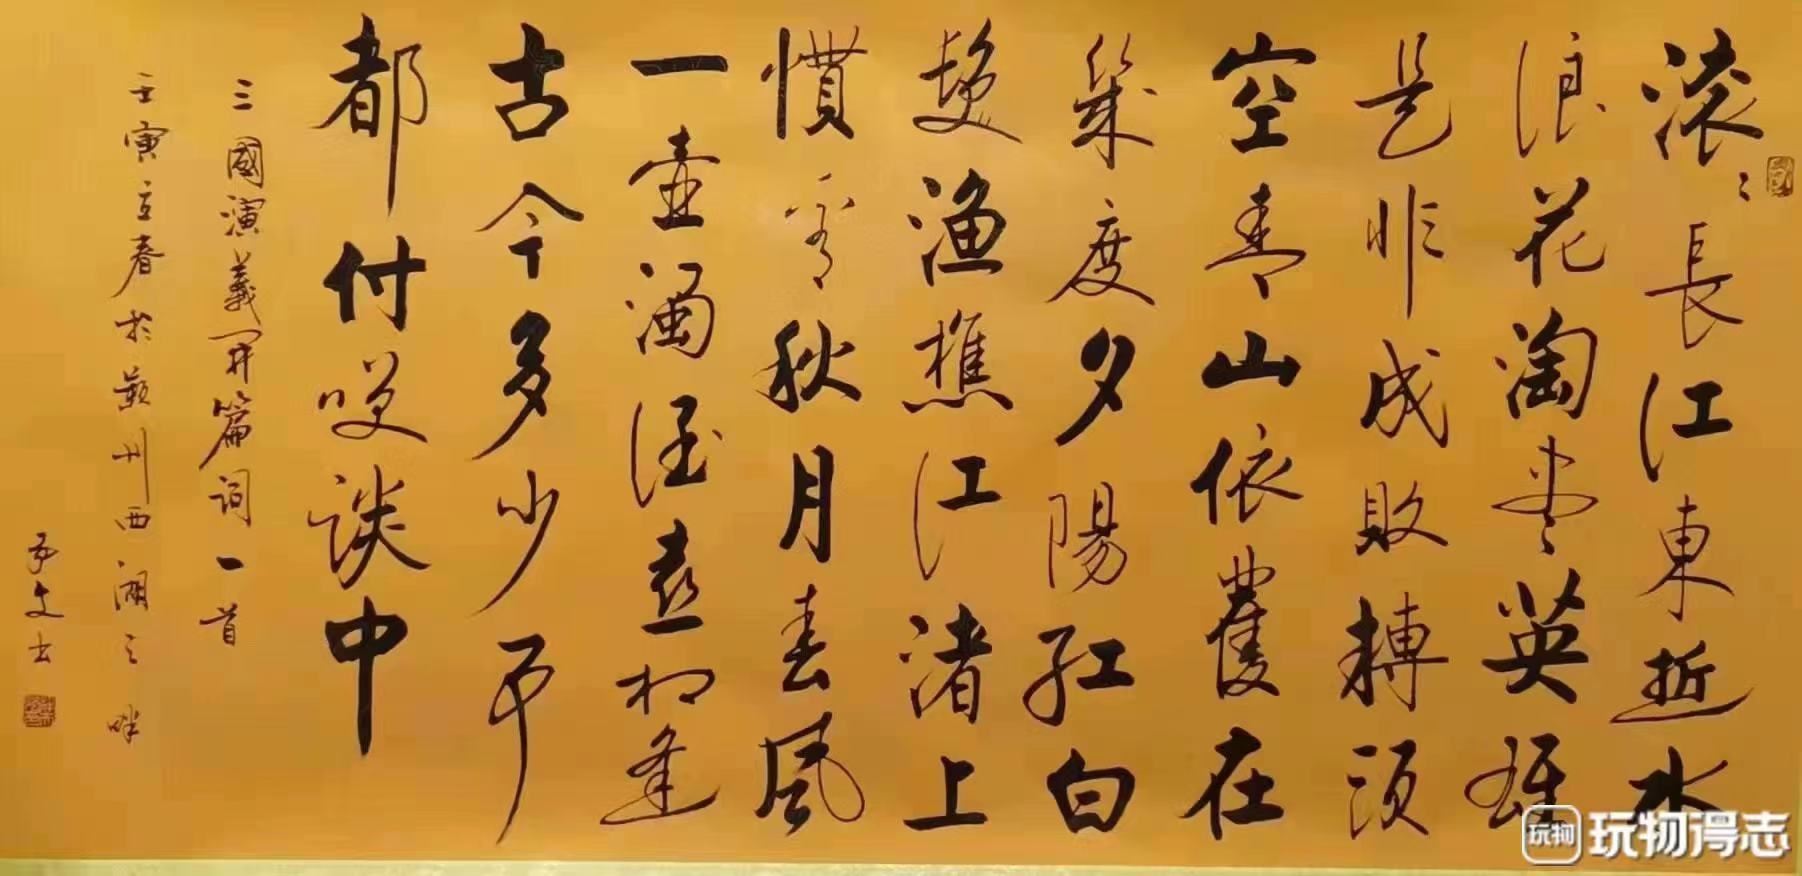 滚〻長江東逝水
浪花淘尽英雄
是非成敗轉頭
空青山依舊在
幾度夕陽紅白
髮渔樵江渚上
慣看秋月春風
一壺濁酒喜相逢
古今多少事
都付咲談中
三國演義開篇詞一首
壬寅立春於州西湖之畔
文书
玩物得志
玩物